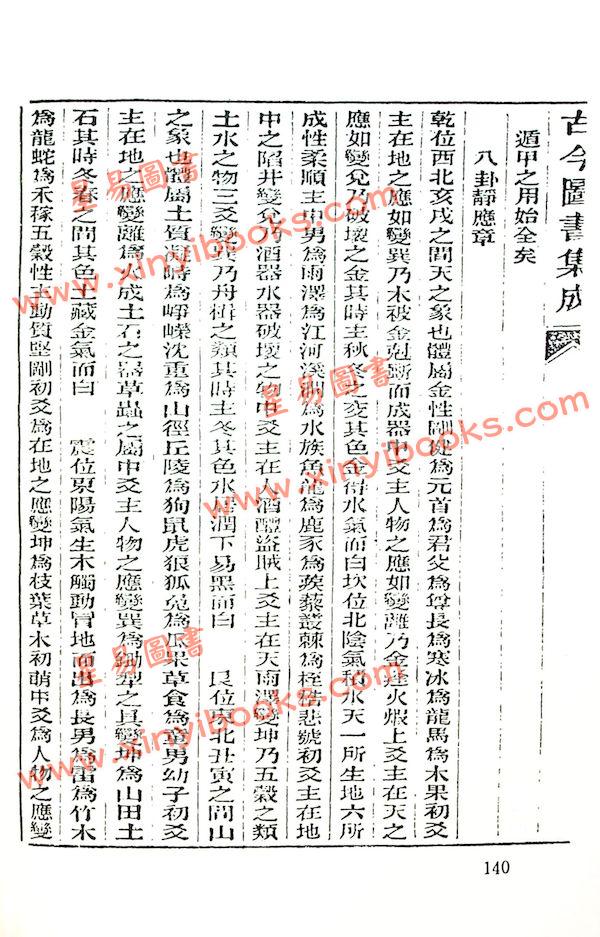 古今圖書集成
遁甲之用始全矣
八卦靜應章
乾位西北亥戌之間天之象也體屬金性剛健為元首為君父為尊長為寒冰為龍馬為木果初爻
主在地之應如變巽乃木被金尅斷而成器中爻主人物之應如變離乃金逢火煅上爻主在天之
應如變兌乃破壞之金其時主秋冬之交其色金得水氣而白坎位北陰氣積水天一所生地六所
成性柔順主中男為雨澤為江河溪澗為水族魚龍為鹿豕為蒺藜叢棘為桎梏悲號初爻主在地
中之陷井變兌乃酒器水器破壞之物中爻主在人酒醴盜賊上爻主在天雨澤變坤乃五穀之類
土水之物三爻變巽乃舟楫之類其時主冬其色水居潤下易黑而白 艮位東北丑寅之間山
之象也體屬土質凝時為崢嶸沈重為山徑丘陵為狗鼠虎狼狐兔為瓜果草食為童男幼子初爻
主在地之應變離為火成土石之器草蟲之屬中爻主人物之應變巽為鋤犁之具變坤為山田土
石其時冬春之間其色土藏金氣而白 震位東陽氣生木觸動冒地而出為長男為雷為竹木
為龍蛇為禾稼五穀性主動質堅剛初爻為在地之應變坤為枝葉草木初萌中爻為人物之應變
140
星易圖書
www.xinyibooks.com
星易圖書
www.xinyibooks.com
星易圖書
www.xinyibooks.com
星易圖書
www.xinyibooks.com